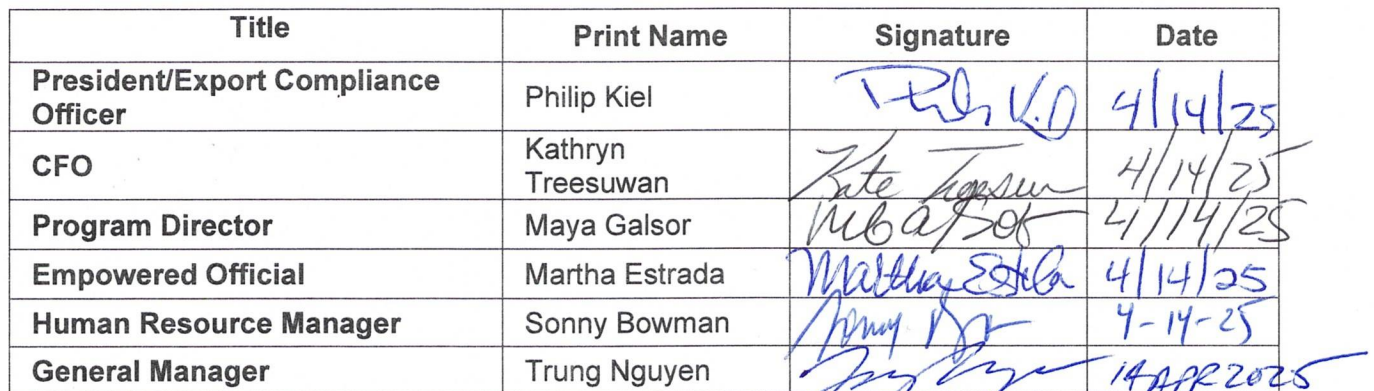 Title Print Name Signature Date
President/Export Compliance
Officer Philip Kiel 4/14/25
CFO Kathryn
Treesuwan Kate 4/14/25
Program Director Maya Galsor 4/14/25
Empowered Official Martha Estrada Martha 4/14/25
Human Resource Manager Sonny Bowman Sonny 4-14-25
General Manager Trung Nguyen 14 APR 2025